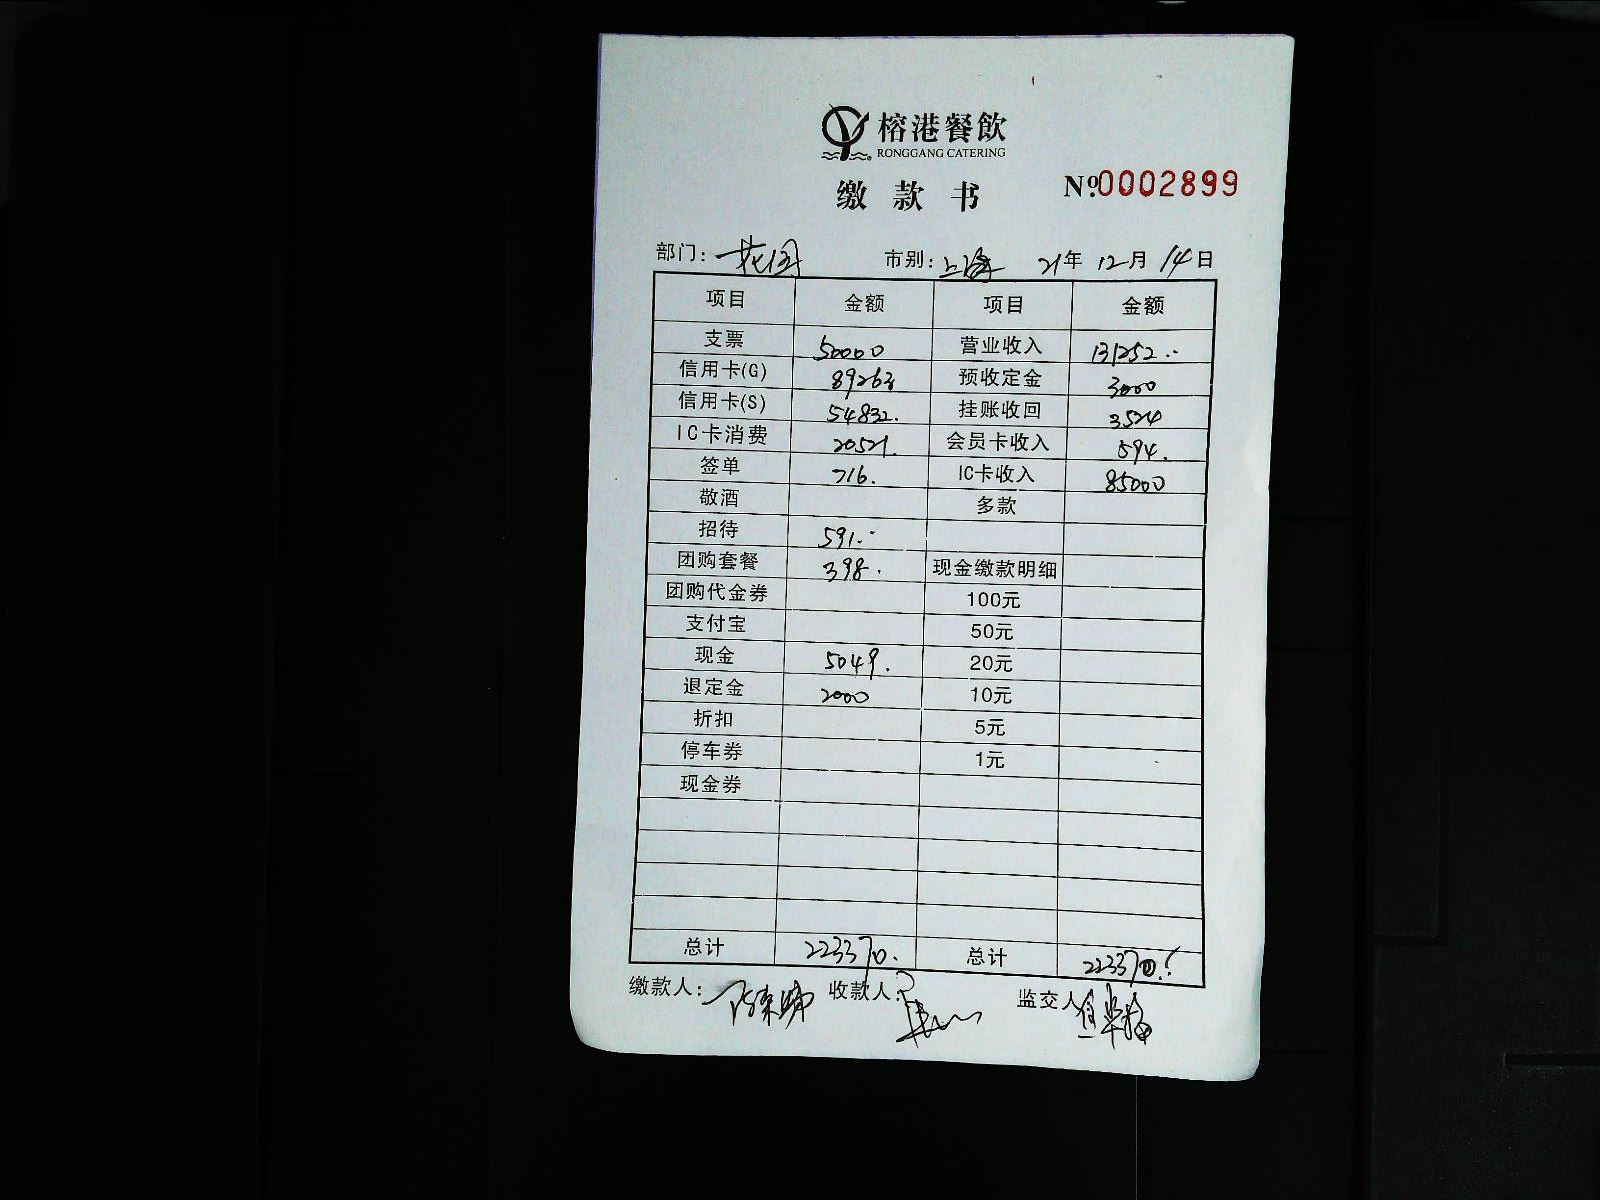 榕港餐飲
RONGGANG CATERING
缴款书 Nº.0002899
部门: 花园 市别: 上海 21年 12月 14日
项目 金额 项目 金额
支票 50000 营业收入 131252.--
信用卡(G) 89263 预收定金 3000
信用卡(S) 54832. 挂账收回 3524
IC卡消费 20521. 会员卡收入 594.
签单 716. IC卡收入 85000
敬酒 多款
招待 591.--
团购套餐 398. 现金缴款明细
团购代金券 100元
支付宝 50元
现金 5049. 20元
退定金 2000 10元
折扣 5元
停车券 1元
现金券
总计 223370. 总计 223370.
缴款人: 收款人: 监交人